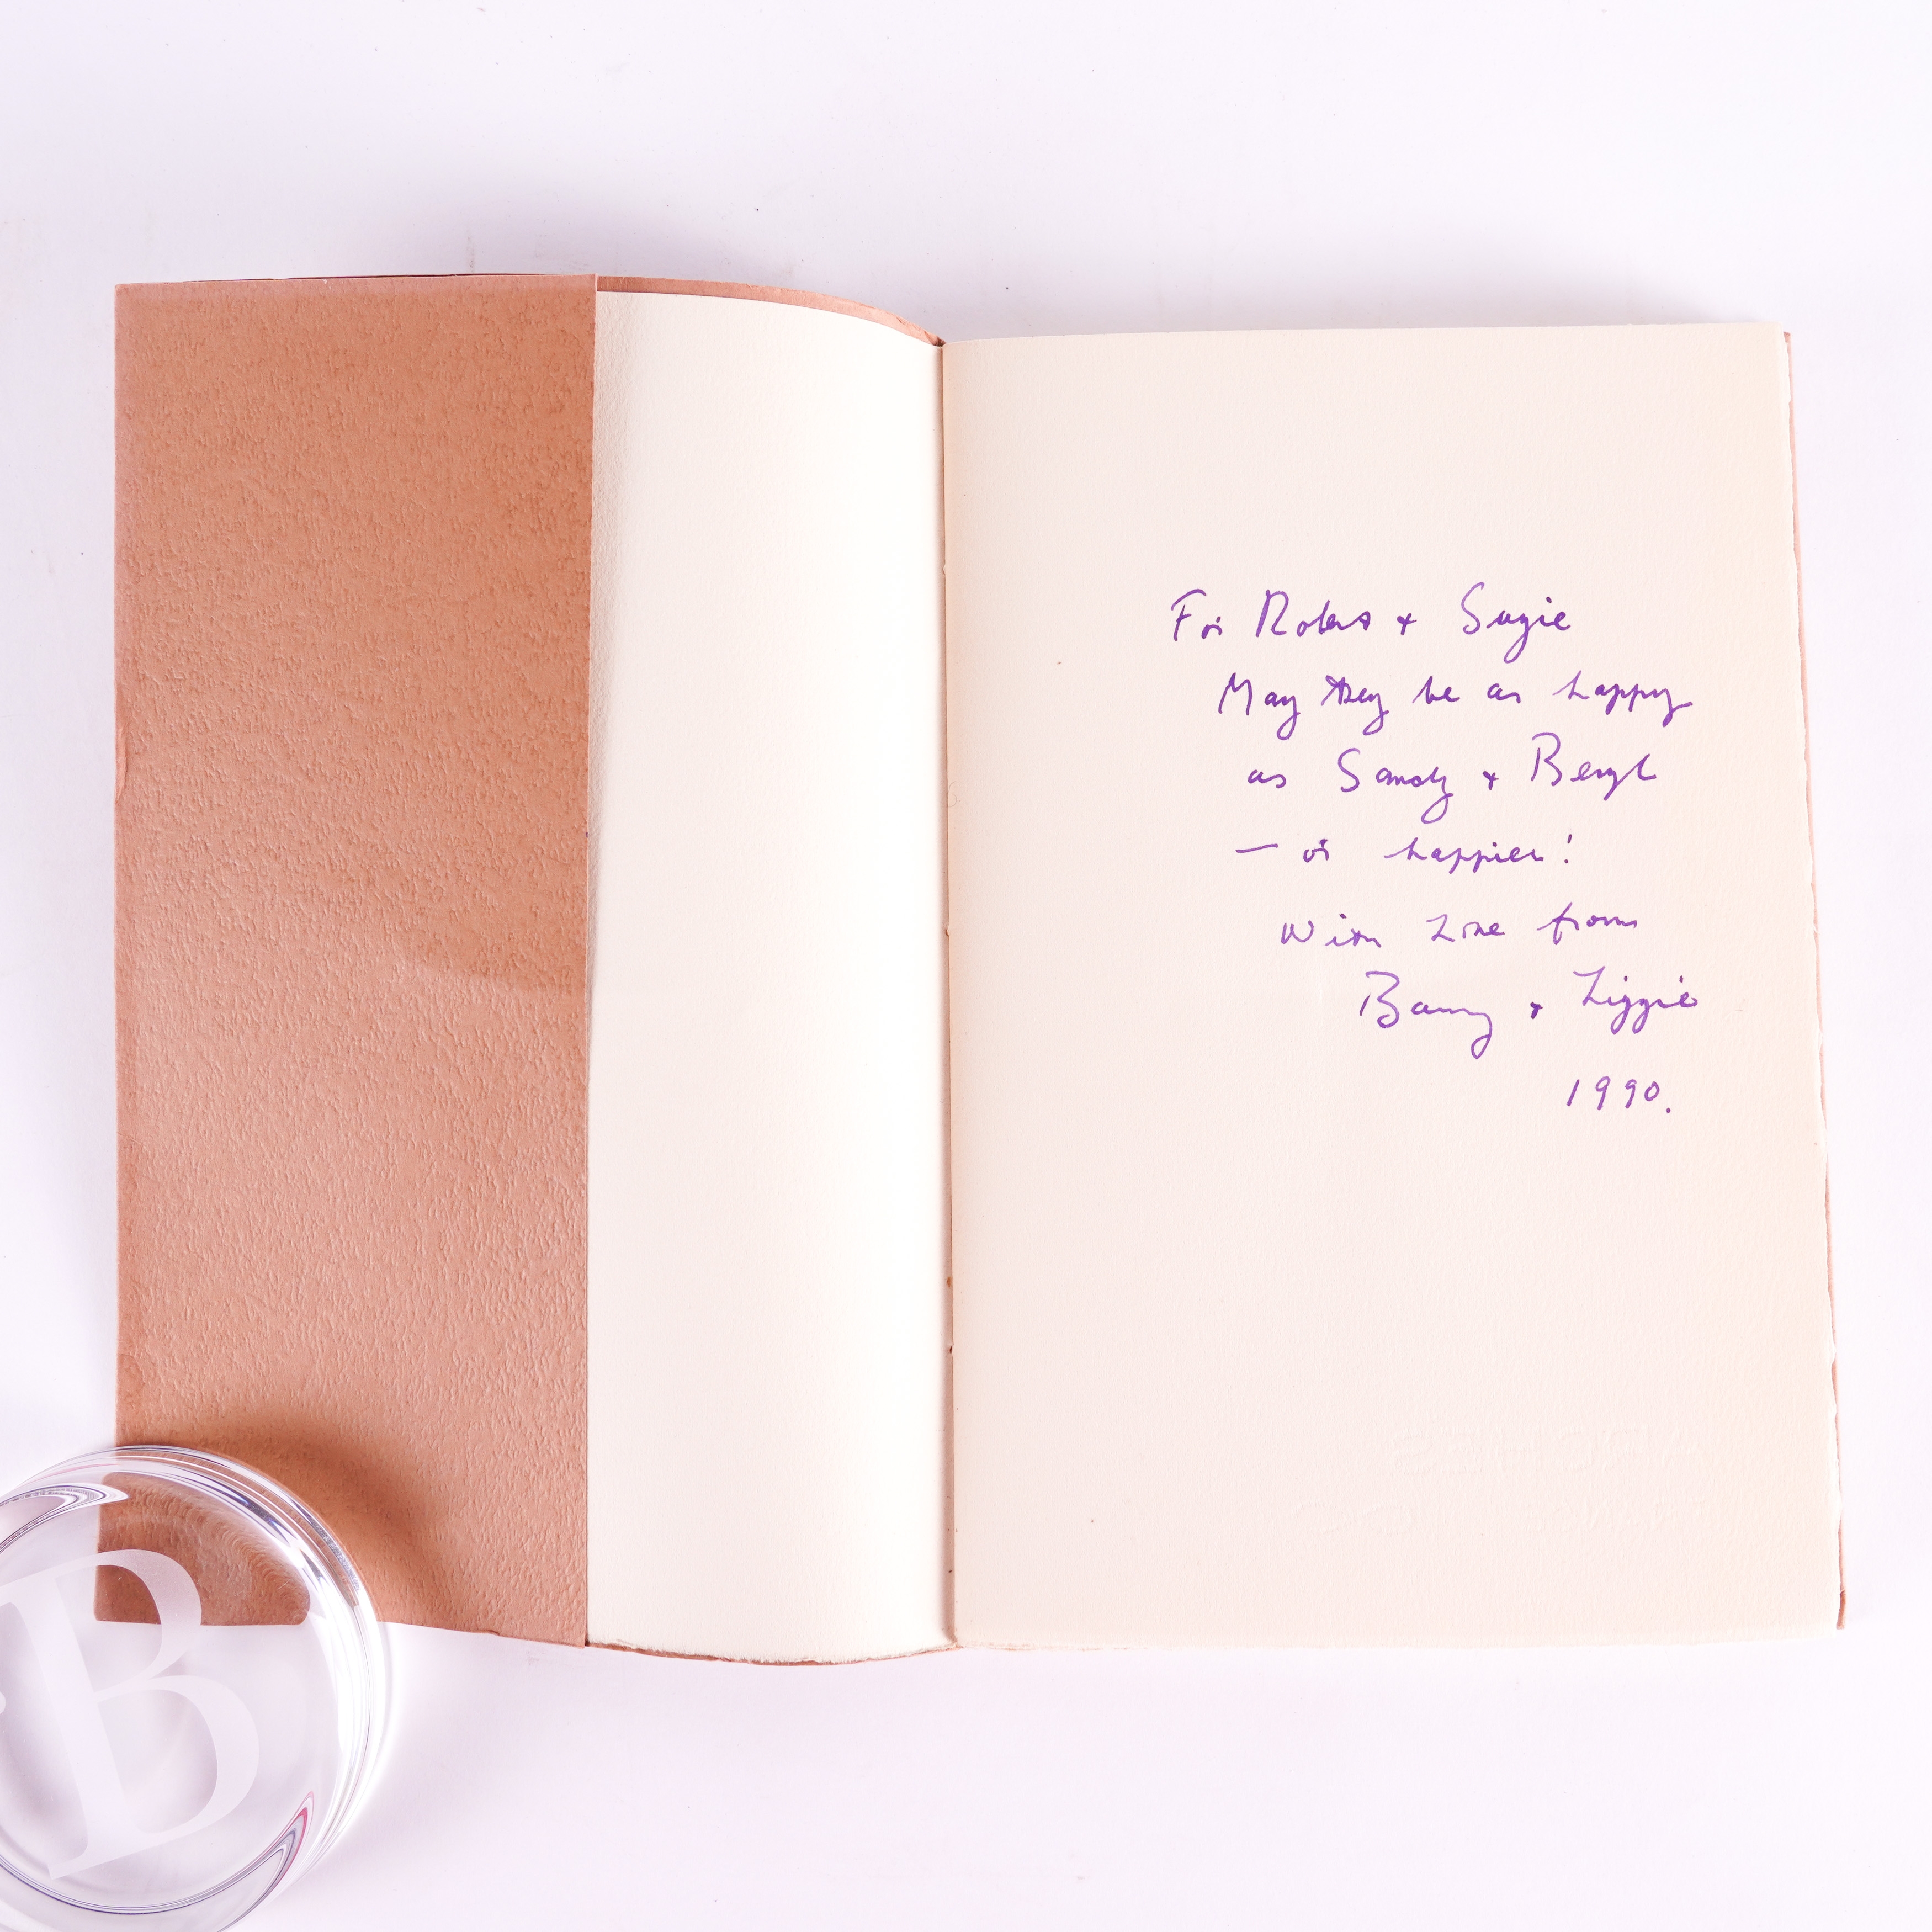 For Robert + Suzie
May they be as happy
as Sandy + Beryl
— or happier!
With Love from
Barry + Lizzie
1990.
ARCHES
B